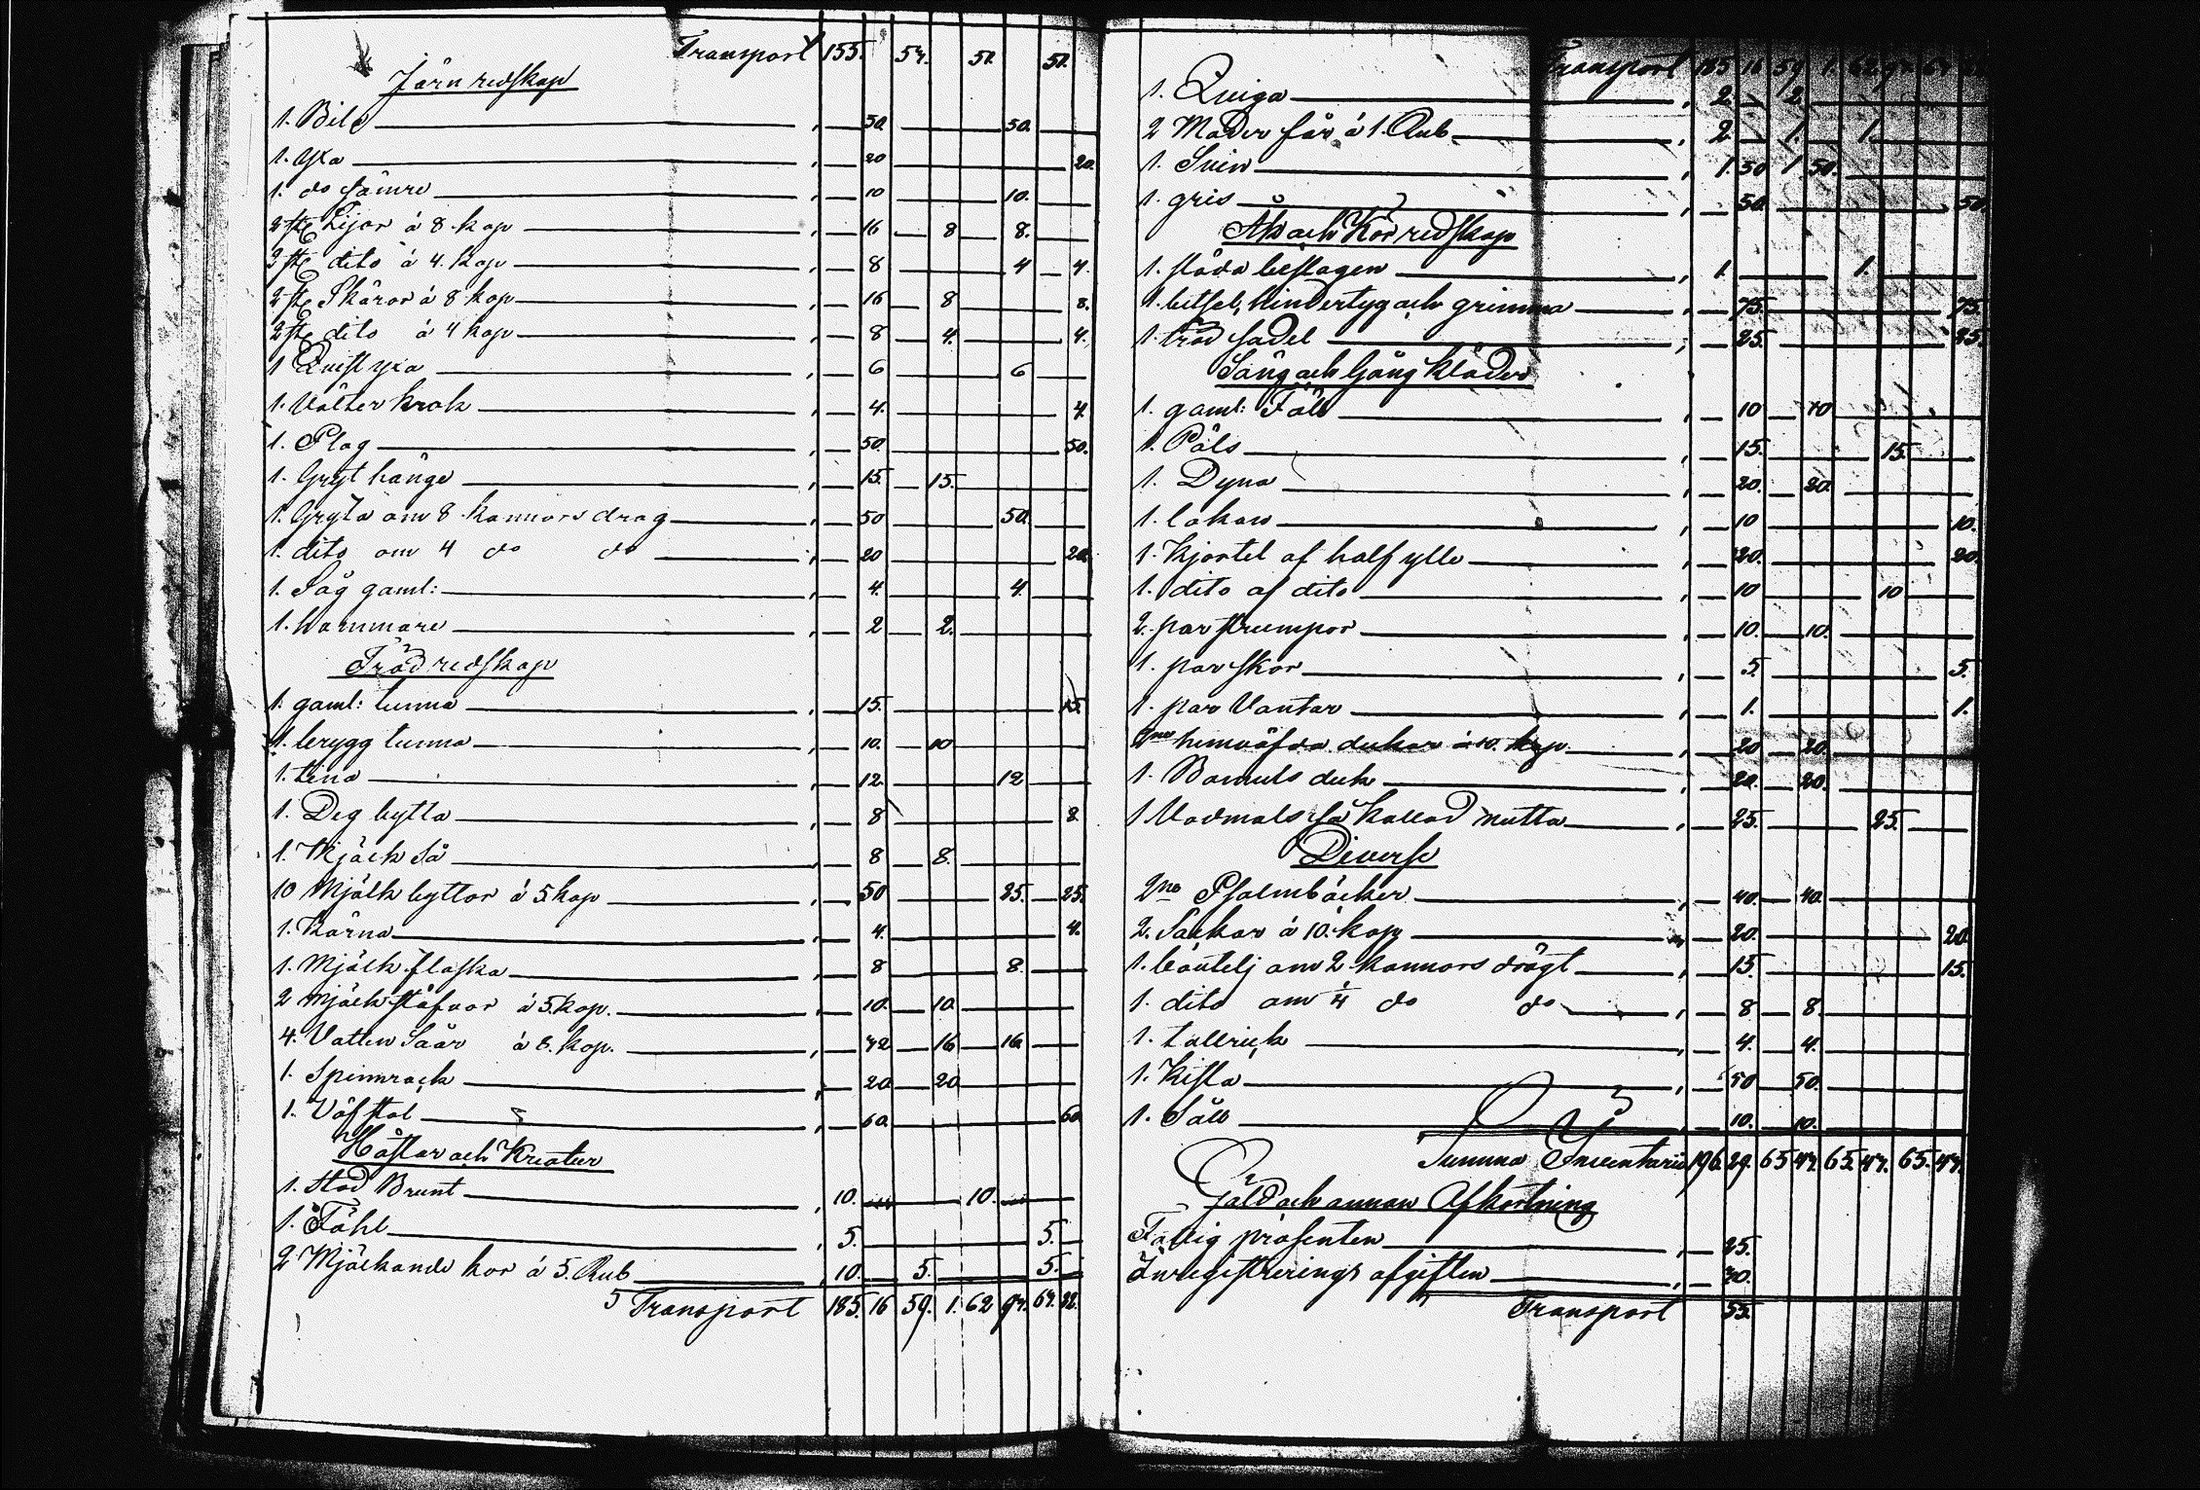 Transport 155. 54. 51. 51.
Järn redskap
1. Bila 50. 50.
1. yxa 20 20.
1. do sämre 10 10.
2 st Lijor á 8. kop 16 8 8.
2 st dito á 4. kop 8 4 4.
2 st Skäror á 8 kop 16 8 8.
2 st dito á 4 kop 8 4. 4.
1 Quist yxa 6 6
1. Välter krok 4. 4.
1. Plog 50. 50.
1. Gryt hänge 15. 15.
1. Gryta om 8. kannors drag 50 50.
1. dito om 4 do do 20 20.
1. Såg gaml: 4. 4.
1. hammare 2 2.
Träd redskap
1. gaml: tunna 15. 15.
1. brygg tunna 10. 10
1. tina 12. 12
1. Deg bytta 8 8.
1. Mjölk Så 8 8.
10 Mjölk byttor á 5. kop 50 25. 25.
1. Kärna 4. 4.
1. Mjölk flaska 8 8.
2 Mjölk stäfvor á 5. kop. 10. 10.
4. Vatten Såar á 8. kop. 32 16 16.
1. Spinnrock 20. 20.
1. Väfstol 60. 60.
Hästar och Kreatur
1. Stod Brunt 10. 10.
1. Fåhl 5. 5.
2 Mjölkande kor á 5. Rub 10. 5. 5.
Transport 185. 16 59. 1. 62 94. 64. 22.
Transport 185 16 59 1. 62 94 64 22
1. Quiga 2. 2.
2 Moder får á 1. Rub 2. 1. 1.
1. Svin 1. 50 1. 50.
1. gris 50. 50.
Åk och Kör redskap
1. släda beslagen 1. 1.
1. betsel, hindertyg och grimma 75. 75.
1. träd sadel 25. 25.
Säng och Gång kläder
1. gaml: Fäll 10 10
1. Päls 15. 15.
1. Dyna 20. 20.
1. lakan 10 10.
1. Kjortel af half ylle 20. 20.
1. dito af dito 10 10
2. par strumpor 10. 10.
1. par skor 5. 5.
1. par Vantar 1. 1.
2ne hemväfda dukar á 10. kop. 20 20.
1. Bomuls duk 20. 20.
1 Vadmals så kallad mutta 25. 25.
Diverse
2ne Psalmböcker 40. 40.
2. Säckar á 10. kop 20. 20
1. boutelj om 2 kannors drägt 15. 15.
1. dito om 1/4 do do 8 8.
1. tallrick 4. 4.
1. Kista 50 50.
1. Såll 10. 10.
Summa Inventarii 196. 29. 65 47. 65. 47. 65. 47.
Gäld och annan Afkortning
Fattig procenten 25.
Inregistrerings afgiften 30.
Transport 55.